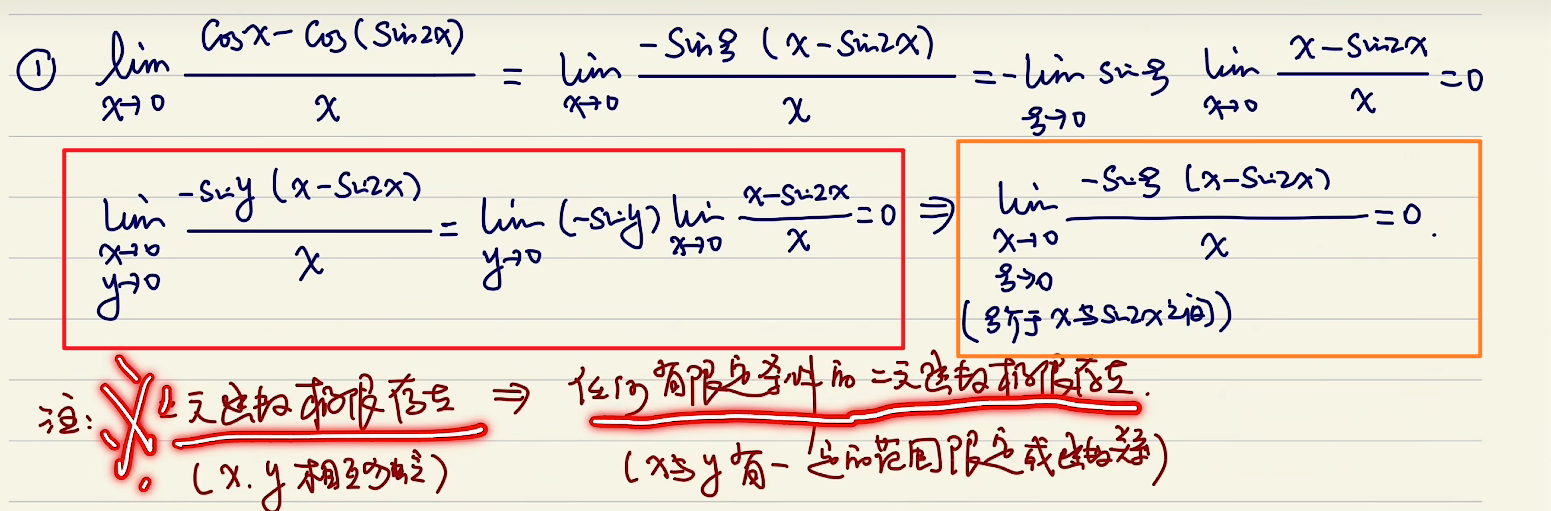 ① lim x→0 (Cosx - Cos(Sin2x)) / x = lim x→0 (-Sinξ (x - Sin2x)) / x = - lim ξ→0 Sinξ lim x→0 (x - Sin2x) / x = 0
lim x→0 y→0 (-Siny (x - Sin2x)) / x = lim y→0 (-Siny) lim x→0 (x - Sin2x) / x = 0 ⇒ lim x→0 ξ→0 (-Sinξ (x - Sin2x)) / x = 0.
(ξ介于x与Sin2x之间)
注: 二元函数极限存在 ⇒ 任何有限定条件的二元函数极限存在.
(x.y相互独立) (x与y有一定的范围限定或函数关系)